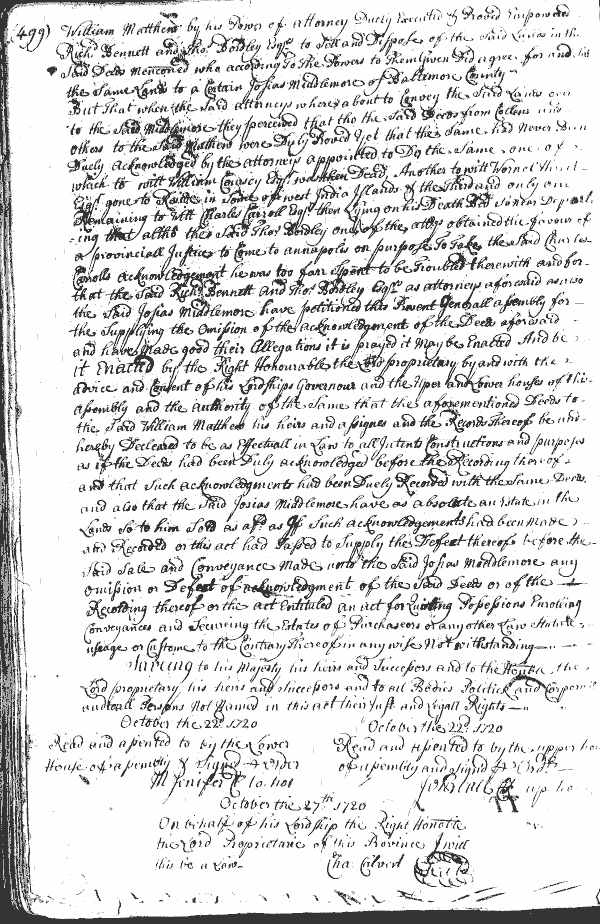 (499) William Matthew by his Power of attorney Duely Executed & Proved Impowered
Richd. Bennett and Tho: Bordley Esqrs to Sell and Dispose of the Said Lands in the
Said Deeds Menconed who according To the Powers to Them Given Did agree for and
the Same Lands to a Certain Josias Middlemore of Baltemore County
But That when the Said attorneys where about to Convey the Said Lands over
to the Said Middlemore they perceived that tho the Said Deeds from Collens and
others to the Said Mathew were Duly Proved yet that the Same had Never Been
Duely Acknowledged by the attorneys appointed to Do the Same one of
which to witt William Coursey Esqr was then Dead, Another to witt Vernel
Esqr gone to Reside in Some of west India Islands & the third and only one
Remaining to Witt Charles Carroll Esqr then Lying on his Death Bed
ing that altho the Said Thos Bordley one of the attys obtained the favour of
a provinciall Justice to Come to annapolis on purpose To take the Said Charles
Carrolls acknowledgement he was too far Spent to be Troubled therewith and for
that the Said Richd Bennett and Tho: Bordley Esqrs as attorneys aforesaid as also
the Said Josias Middlemore have petitioned this Present Generall assembly for
the Supplying the Omission of the acknowledgment of the Deeds aforesaid
and have made good their allegations it is prayed it May be Enacted And be
it Enacted by the Right Honourable the Lord proprietary by and with the
advice and Consent of his Lordships Governour and the Uper and Lower houses of this
assembly and the authority of the Same that the aforementioned Deeds to
the Said William Matthew his heirs and assignes and the Records Thereof be and
hereby Decleared to be as Effectuall in Law to all Intents Constructions and purposes
as if the Deeds had been Duly acknowledged before the Recording thereof
and that Such acknowledgments had been Duely Recorded with the Same Deeds
and also that the Said Josias Middlemore have as absolute an Estate in the
Lands So to him Sold as afd. as if Such acknowledgements had been made
and Recorded or this act had Passed to Supply the Defect thereof before the
Said Sale and Conveyance Made unto the Said Josias Middlemore any
Omission or Defect of acknowledgment of the Said Deeds or of the
Recording thereof or the act Entituled an act for Quieting Possessions Enrolling
Conveyances and Secureing the Estates of Purchasers or any other Law Statute
usage or Custome to the Contrary Thereof in any wise Notwithstanding
Saveing to his Majesty his heirs and Successors and to the Honble. the
Lord proprietary his heirs and Successors and to all Bodies Politick and Corporate
and all Persons Not Named in this act their Just and Legall Rights
October the 22d. 1720
Read and assented to by the Lower
House of assembly & Signed Order
M Jenifer Cl lo hos
October the 22d. 1720
Read and assented to by the upper ho
of assembly and signed Order
Cl up ho
October the 27th 1720
On behalf of his Lordship the Right Honble
the Lord Proprietarie of this Province I will
this be a Law
Cha Calvert